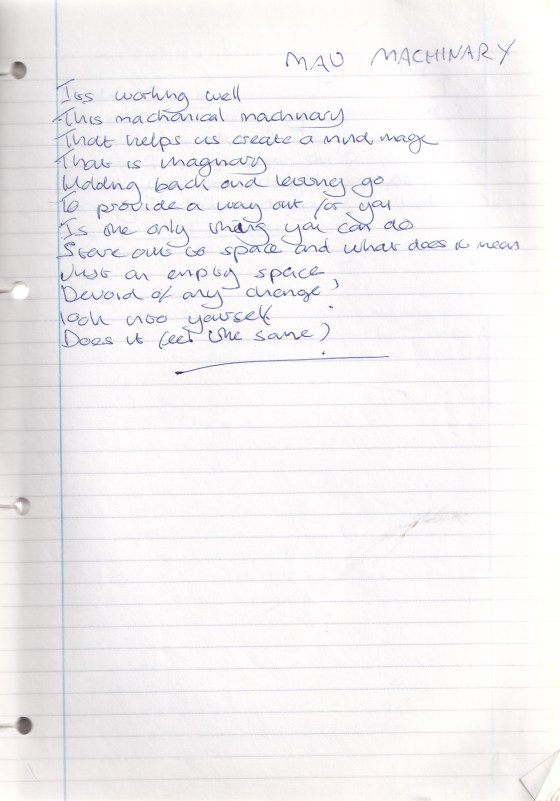 MAD MACHINARY
Its working well
This machanical machinary
That helps us create a mind image
That is imaginary
Holding back and letting go
To provide a way out for you
Is the only thing you can do
Stare out to space and what does it mean
Just an empty space
Devoid of any change?
look into yourself
Does it feel the same?